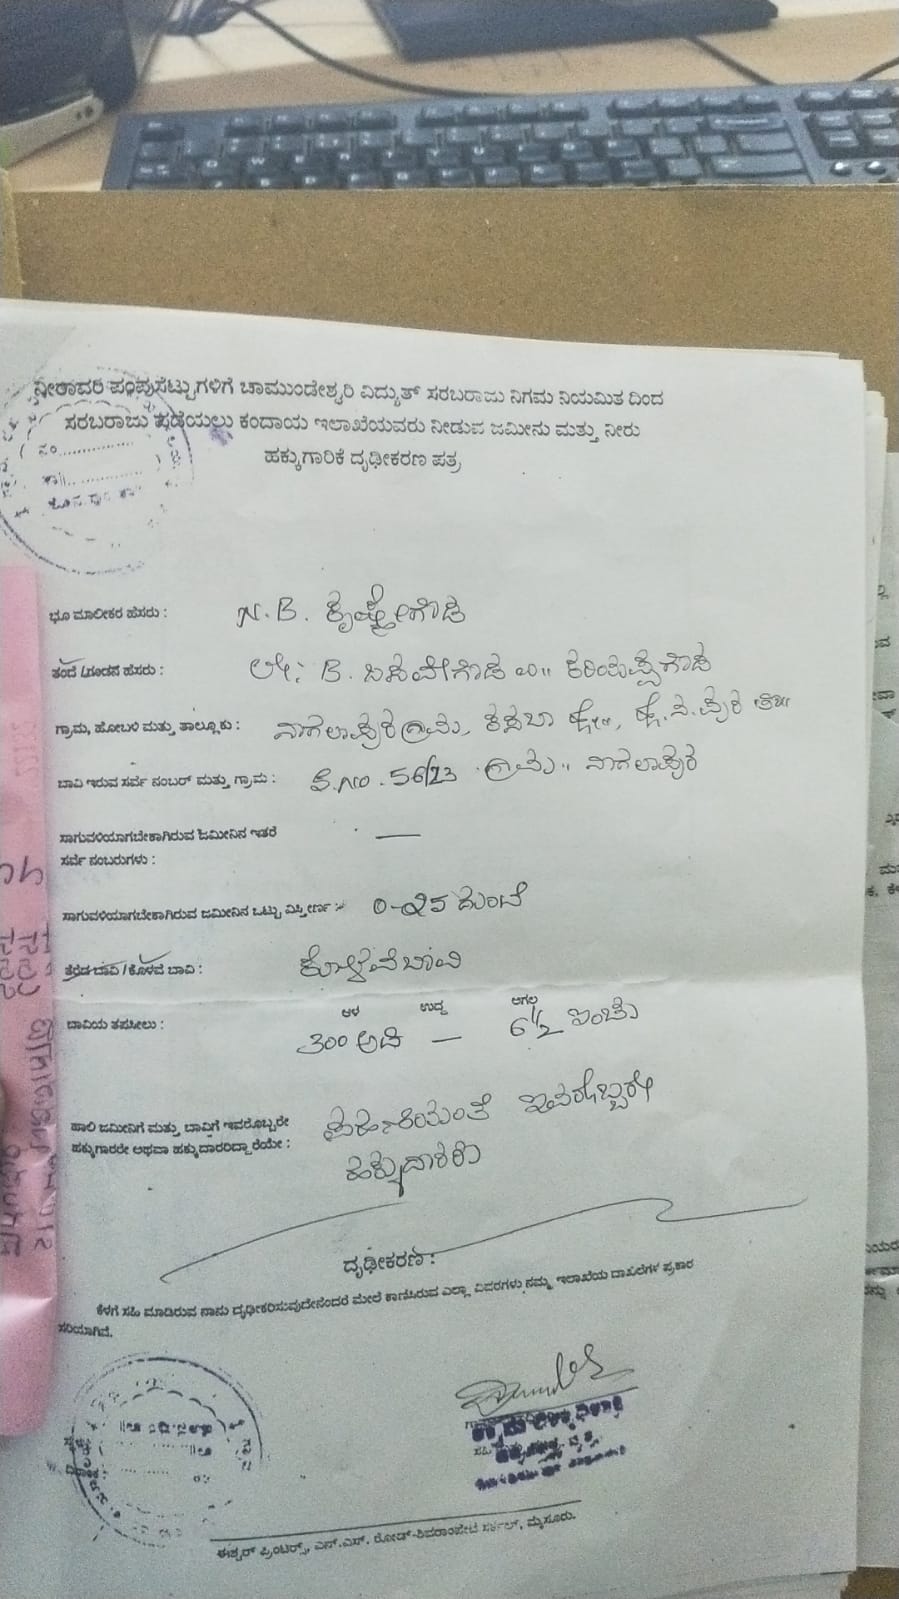 ನೀರಾವರಿ ಪಂಪುಸೆಟ್ಟುಗಳಿಗೆ ಚಾಮುಂಡೇಶ್ವರಿ ವಿದ್ಯುತ್ ಸರಬರಾಜು ನಿಗಮ ನಿಯಮಿತ ದಿಂದ
ಸರಬರಾಜು ಪಡೆಯಲು ಕಂದಾಯ ಇಲಾಖೆಯವರು ನೀಡುವ ಜಮೀನು ಮತ್ತು ನೀರು
ಹಕ್ಕುಗಾರಿಕೆ ದೃಢೀಕರಣ ಪತ್ರ
ಭೂ ಮಾಲೀಕರ ಹೆಸರು : N.B. ಕೃಷ್ಣೇಗೌಡ
ತಂದೆ /ಗಂಡನ ಹೆಸರು : ಲೇ: B. ಬಸವೇಗೌಡ
ಗ್ರಾಮ, ಹೋಬಳಿ ಮತ್ತು ತಾಲ್ಲೂಕು : ನಾಗಲಾಪುರ ಗ್ರಾಮ, ಕಸಬಾ
ಬಾವಿ ಇರುವ ಸರ್ವೆ ನಂಬರ್ ಮತ್ತು ಗ್ರಾಮ : S.No. 56/23 ಗ್ರಾಮ ನಾಗಲಾಪುರ
ಸಾಗುವಳಿಯಾಗಬೇಕಾಗಿರುವ ಜಮೀನಿನ ಇತರೆ —
ಸರ್ವೆ ನಂಬರುಗಳು :
ಸಾಗುವಳಿಯಾಗಬೇಕಾಗಿರುವ ಜಮೀನಿನ ಒಟ್ಟು ವಿಸ್ತೀರ್ಣ : 0-25 ಗುಂಟೆ
ತೆರೆದ ಬಾವಿ / ಕೊಳವೆ ಬಾವಿ : ಕೊಳವೆ ಬಾವಿ
ಆಳ ಉದ್ದ ಅಗಲ
ಬಾವಿಯ ತಪಸೀಲು : 300 ಅಡಿ — 6 1/2 ಇಂಚು
ಹಾಲಿ ಜಮೀನಿಗೆ ಮತ್ತು ಬಾವಿಗೆ ಇವರೊಬ್ಬರೇ ಪಹಣಿಯಂತೆ ಇವರೊಬ್ಬರೇ
ಹಕ್ಕುಗಾರರೇ ಅಥವಾ ಹಕ್ಕುದಾರರಿದ್ದಾರೆಯೇ : ಹಕ್ಕುದಾರರು
ದೃಢೀಕರಣ :
ಕೆಳಗೆ ಸಹಿ ಮಾಡಿರುವ ನಾನು ದೃಢೀಕರಿಸುವುದೇನೆಂದರೆ ಮೇಲೆ ಕಾಣಿಸಿರುವ ಎಲ್ಲಾ ವಿವರಗಳು ನಮ್ಮ ಇಲಾಖೆಯ ದಾಖಲೆಗಳ ಪ್ರಕಾರ
ಸರಿಯಾಗಿವೆ.
ಈಶ್ವರ್ ಪ್ರಿಂಟರ್ಸ್, ಎನ್.ಎಸ್. ರೋಡ್-ಶಿವರಾಂಪೇಟೆ ಸರ್ಕಲ್, ಮೈಸೂರು.